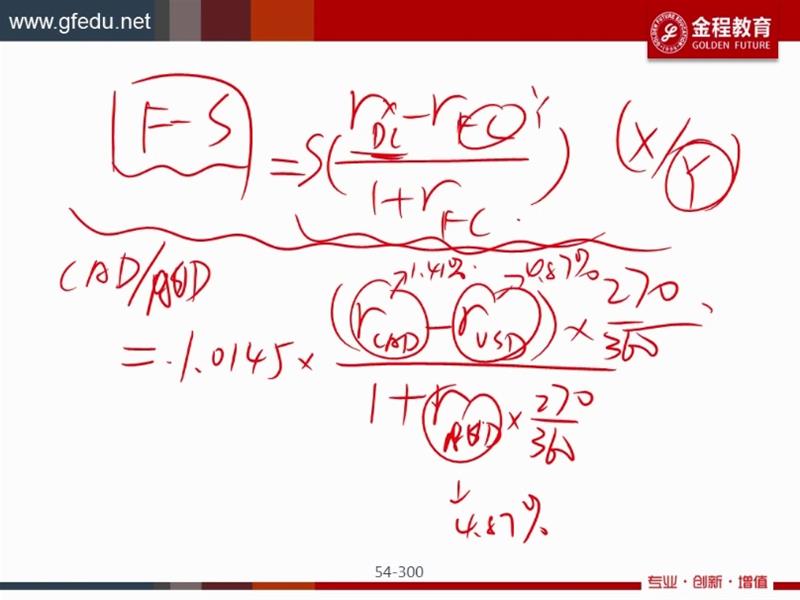 www.gfedu.net
金程教育
GOLDEN FUTURE
F-S = S( (r DC x - r FC Y) / (1+r FC) ) (X/Y)
CAD/AUD
= 1.0145 × ( (r CAD - r USD) × 270/360 ) / ( 1 + r AUD × 270/360 )
1.41%
4.87%
54-300
专业·创新·增值